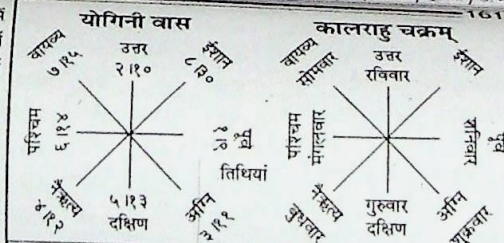 161
योगिनी वास
वायव्य
७।१५
उत्तर
२।१०
ईशान
८।३०
पश्चिम
६।१४
पूर्व
१।९
तिथियां
नैऋत्य
४।१२
५।१३
दक्षिण
अग्नि
३।११
कालराहु चक्रम्
वायव्य
सोमवार
उत्तर
रविवार
ईशान
पश्चिम
मंगलवार
पूर्व
शनिवार
नैऋत्य
बुधवार
गुरुवार
दक्षिण
अग्नि
शुक्रवार